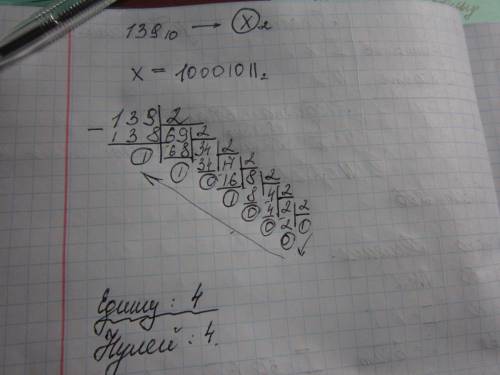 139₁₀ → X₂
X = 10001011₂
− 139 | 2
138 | 69 | 2
1 | 68 | 34 | 2
1 | 34 | 17 | 2
0 | 16 | 8 | 2
1 | 8 | 4 | 2
0 | 4 | 2 | 2
0 | 2 | 1
0
Единиц : 4
Нулей : 4.